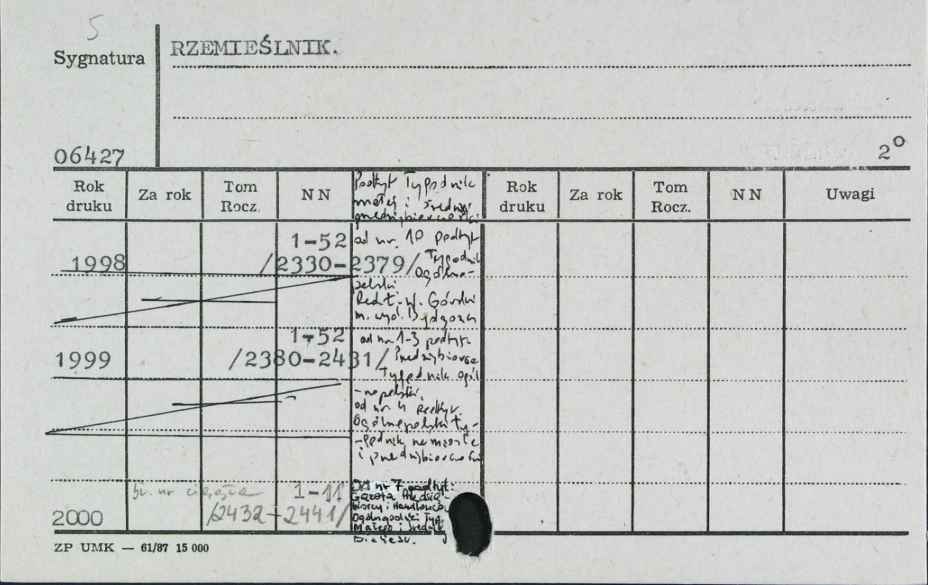 5
Sygnatura
RZEMIEŚLNIK.
06427
2°
Rok druku
Za rok
Tom Rocz.
NN
Podtyt Tygodnik
małej i średniej
przedsiębiorczości
Rok druku
Za rok
Tom Rocz.
NN
Uwagi
1-52
1998
/2330-2379/
od nr. 10 podtyt
Tygodnik
Ogólno-
polski
Redt. W. Górski
m. wyd. Bydgoszcz
1-52
1999
/2380-2431/
od nr 1-3 podtyt.
Tygodnik ogól
-nopolski,
od nr 4
Ogólnopolski ty-
-godnik rzemiosła
i przedsiębiorczości
nr
1-11
2000
/2432-2441/
Od nr 7 podtyt:
Gazeta
Ogólnopolski Tyg.
Małego i Średn.
Biznesu.
ZP UMK — 61/87 15 000